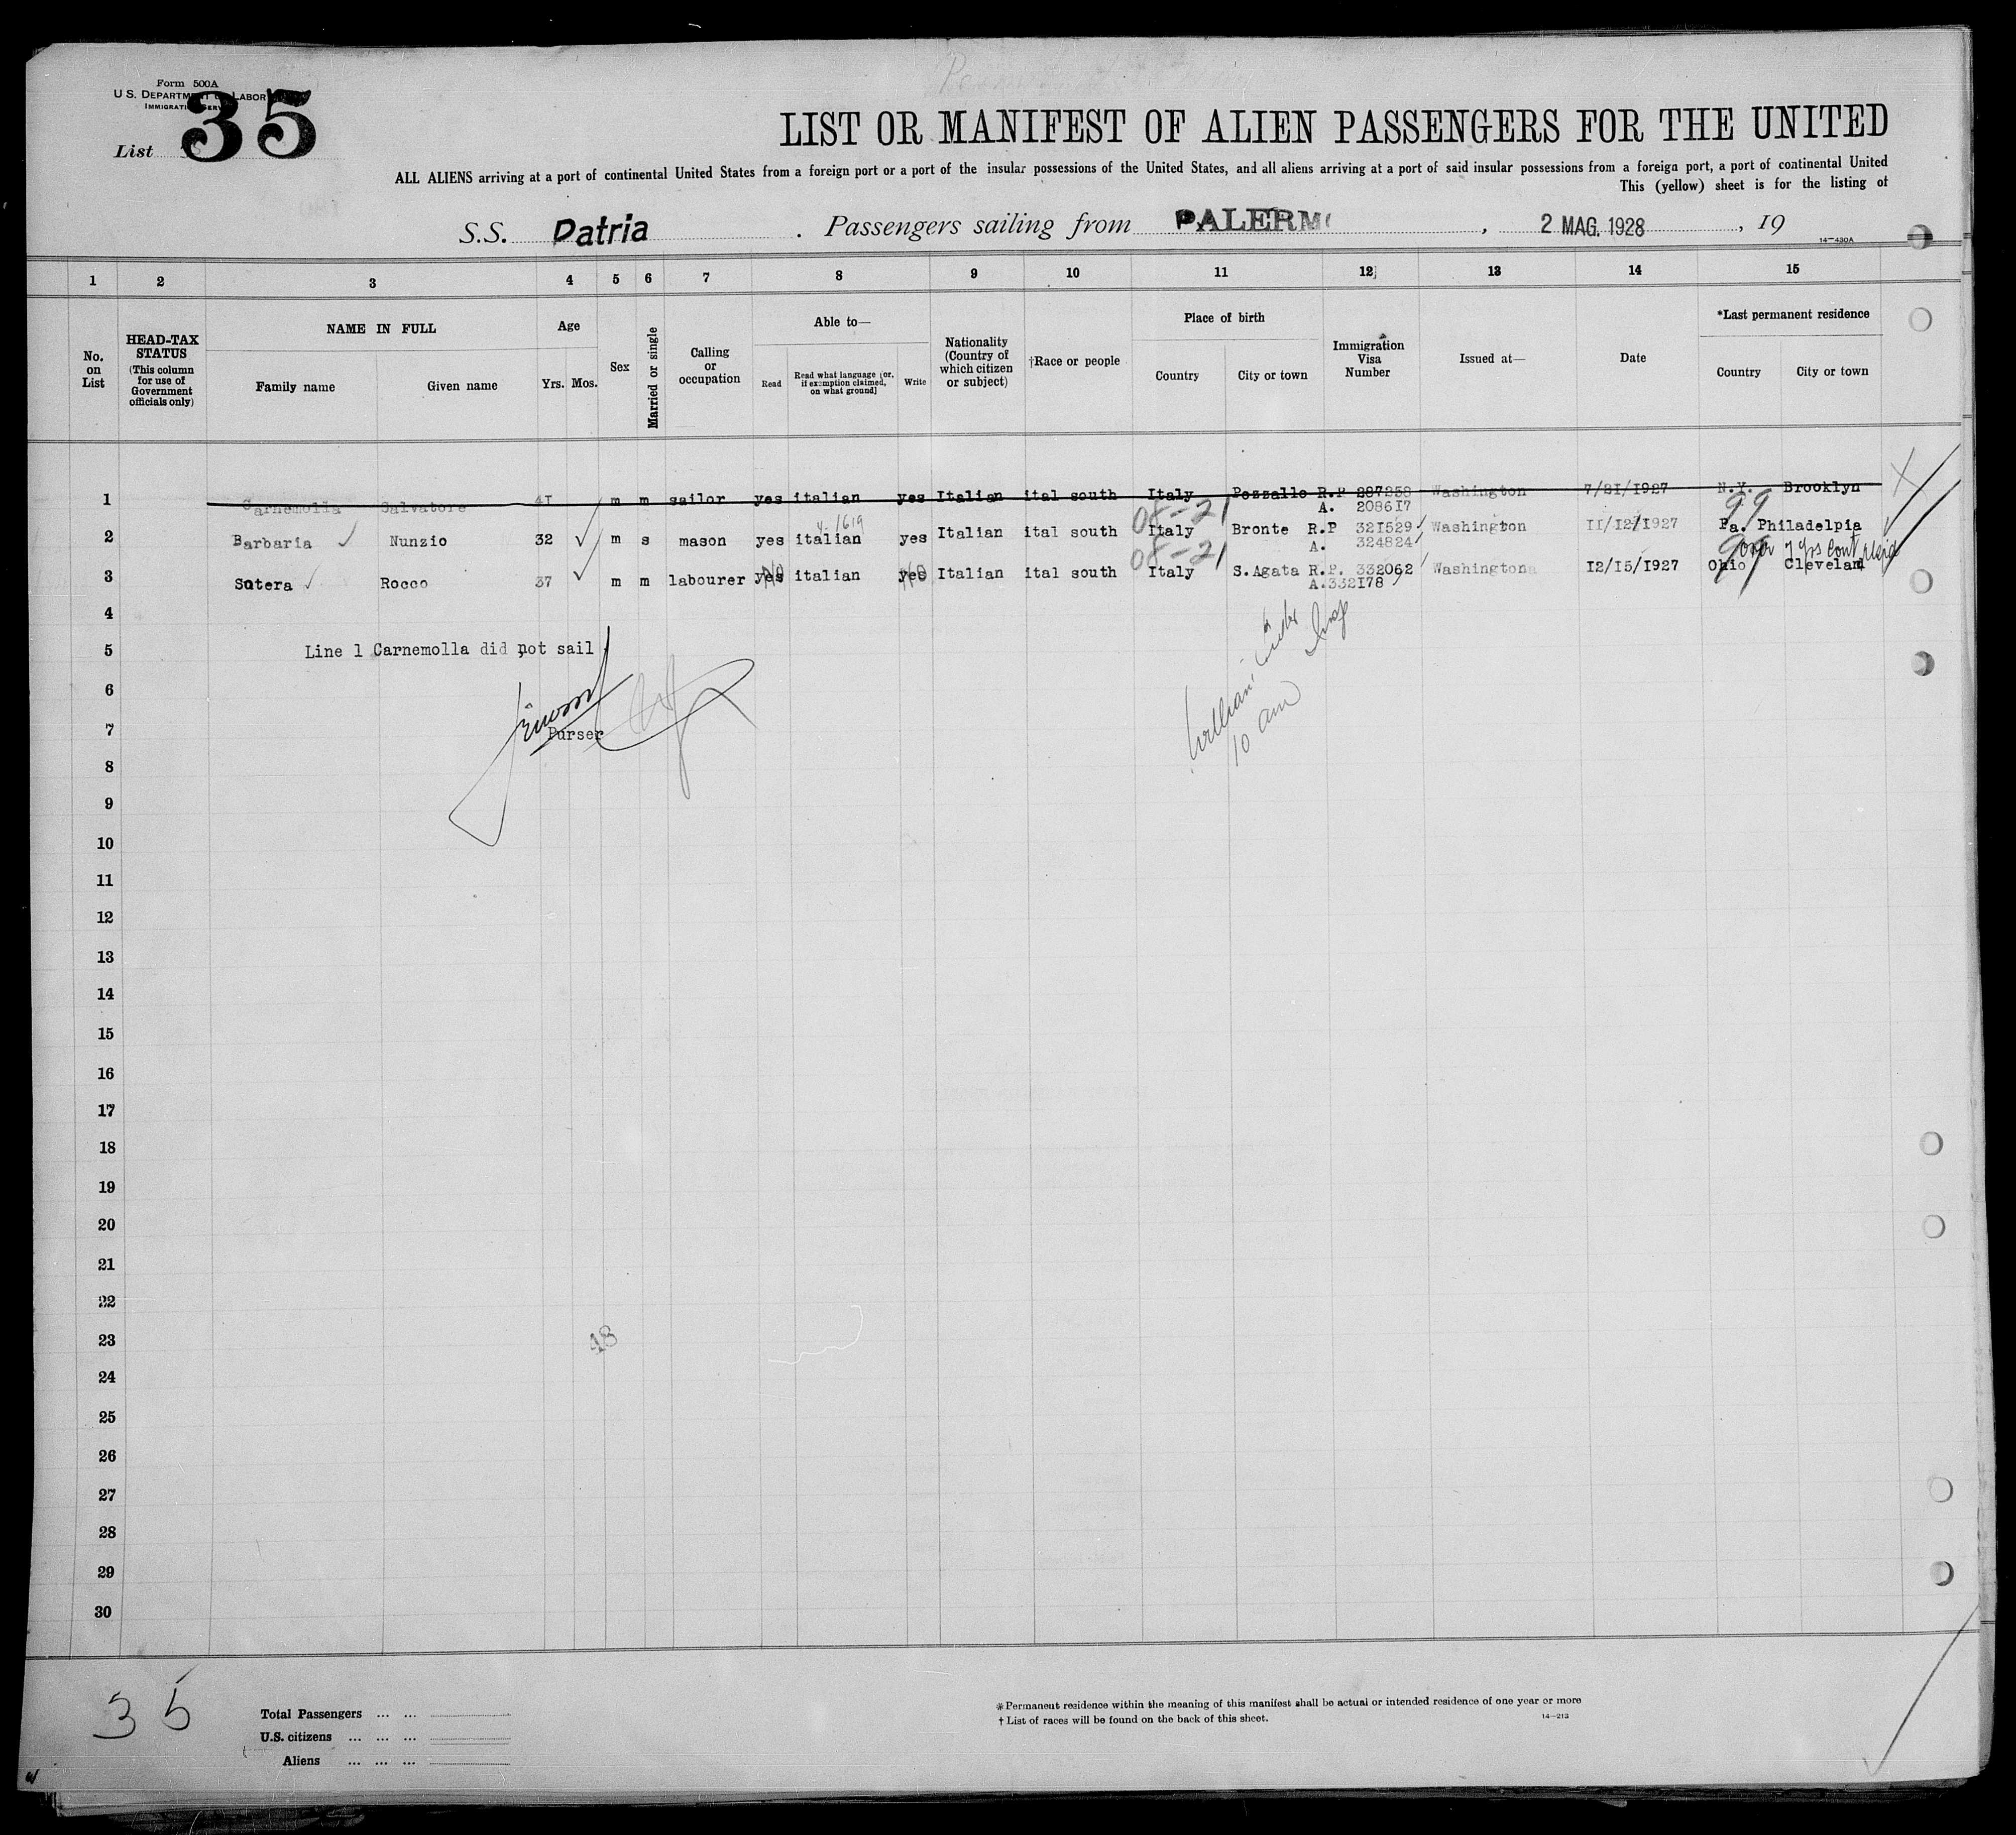 Form 500A
U S. DEPARTMENT OF LABOR
IMMIGRATION SERVICE
List 35
LIST OR MANIFEST OF ALIEN PASSENGERS FOR THE UNITED
ALL ALIENS arriving at a port of continental United States from a foreign port or a port of the insular possessions of the United States, and all aliens arriving at a port of said insular possessions from a foreign port, a port of continental United
This (yellow) sheet is for the listing of
S.S. Patria . Passengers sailing from PALERMO , 2 MAG. 1928 , 19
14—430A
1 2 3 4 5 6 7 8 9 10 11 12 13 14 15
No. on List
HEAD-TAX STATUS (This column for use of Government officials only)
NAME IN FULL
Family name Given name
Age
Yrs. Mos.
Sex
Married or single
Calling or occupation
Able to—
Read
Read what language [or, if exemption claimed, on what ground]
Write
Nationality (Country of which citizen or subject)
†Race or people
Place of birth
Country City or town
Immigration Visa Number
Issued at—
Date
*Last permanent residence
Country City or town
1 Carnemolla Salvatore 41 m m sailor yes italian yes Italian ital south Italy Pozzallo R.P 287258 Washington 7/21/1927 N.Y. Brooklyn
A. 208617
08-21 99
4-1619
2 Barbaria Nunzio 32 m s mason yes italian yes Italian ital south Italy Bronte R.P 321529 Washington 11/12/1927 Pa. Philadelpia
A. 324824
08-21 99 over 7 yrs Cont
3 Sutera Rocco 37 m m labourer yes No italian yes No Italian ital south Italy S.Agata R.P. 332062 Washington 12/15/1927 Ohio Cleveland
A.332178
4
5 Line 1 Carnemolla did not sail
6
7 Purser
10 am
8
9
10
11
12
13
14
15
16
17
18
19
20
21
22
23
48
24
25
26
27
28
29
30
35
Total Passengers ... ...
U.S. citizens ... ... ...
Aliens ... ... ...
*Permanent residence within the meaning of this manifest shall be actual or intended residence of one year or more
† List of races will be found on the back of this sheet.
14—213